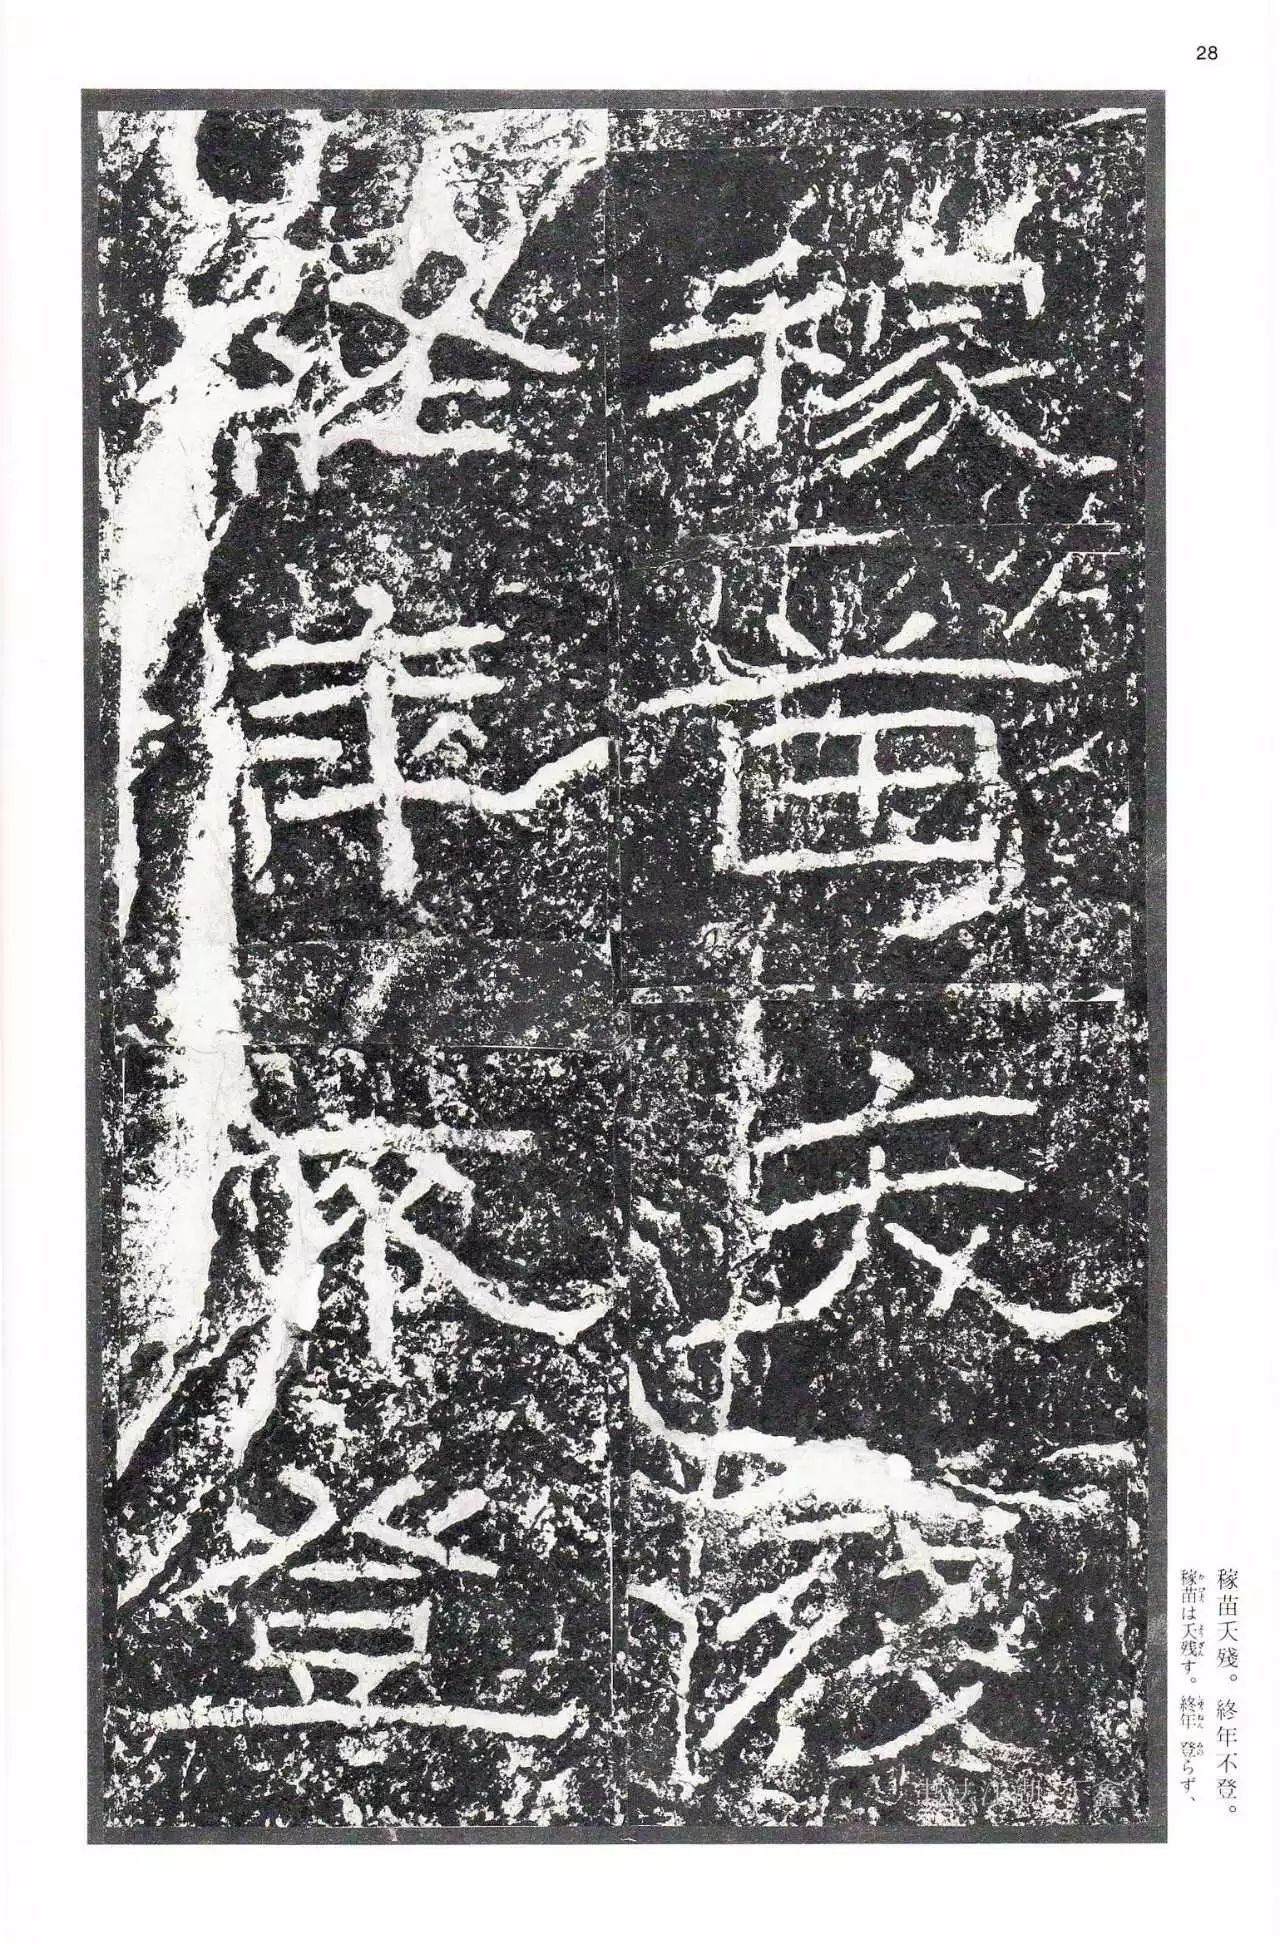 28
稼苗夭殘
終年不登
稼苗夭殘。終年不登。
稼苗は夭残す。終年登らず、